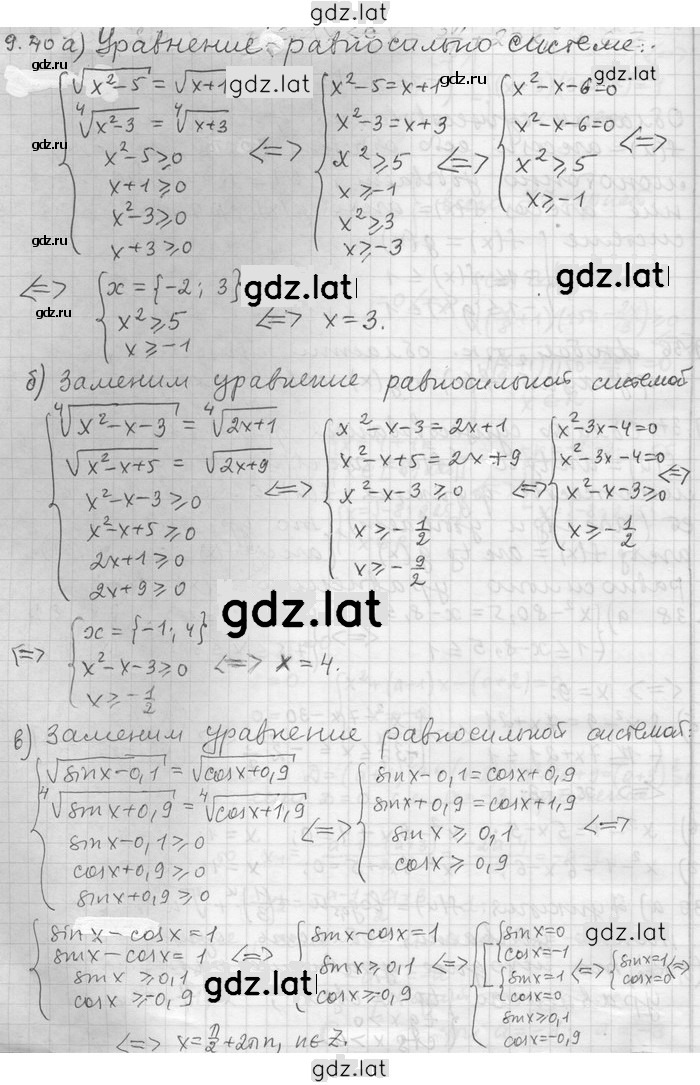 gdz.lat
9.40 а) Уравнение равносильно системе:
√(x²-5) = √(x+1)
⁴√(x²-3) = ⁴√(x+3)
x²-5≥0
x+1≥0
x²-3≥0
x+3≥0
<=>
x²-5=x+1
x²-3=x+3
x²≥5
x≥-1
x²≥3
x≥-3
<=>
x²-x-6=0
x²-x-6=0
x²≥5
x≥-1
<=>
gdz.lat
gdz.lat
gdz.lat
<=>
x={-2; 3}
x²≥5
x≥-1
<=> x=3.
gdz.lat
gdz.lat
gdz.lat
б) Заменим уравнение равносильной системой
⁴√(x²-x-3) = ⁴√(2x+1)
√(x²-x+5) = √(2x+9)
x²-x-3≥0
x²-x+5≥0
2x+1≥0
2x+9≥0
<=>
x²-x-3=2x+1
x²-x+5=2x+9
x²-x-3≥0
x≥-1/2
x≥-9/2
<=>
x²-3x-4=0
x²-3x-4=0
x²-x-3≥0
x≥-1/2
<=>
gdz.lat
<=>
x={-1; 4}
x²-x-3≥0
x≥-1/2
<=> x=4.
в) Заменим уравнение равносильной системой:
√(sinx-0,1) = √(cosx+0,9)
⁴√(sinx+0,9) = ⁴√(cosx+1,9)
sinx-0,1≥0
cosx+0,9≥0
sinx+0,9≥0
<=>
sinx-0,1=cosx+0,9
sinx+0,9=cosx+1,9
sinx≥0,1
cosx≥0,9
<=>
sinx-cosx=1
sinx-cosx=1
sinx≥0,1
cosx≥-0,9
<=>
sinx-cosx=1
sinx≥0,1
cosx≥-0,9
<=>
sinx=0
cosx=-1
sinx=1
cosx=0
sinx≥0,1
cosx=-0,9
<=>
sinx=1
cosx=0
<=>
gdz.lat
gdz.lat
<=> x=π/2+2πn, n∈Z.
gdz.lat